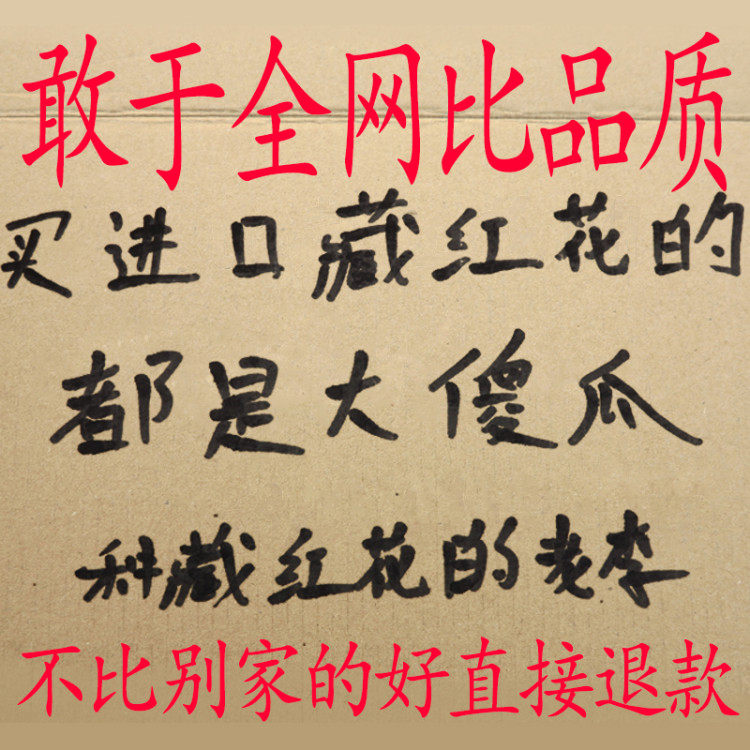 敢于全网比品质
买进口藏红花的
都是大傻瓜
种藏红花的老李
不比别家的好直接退款